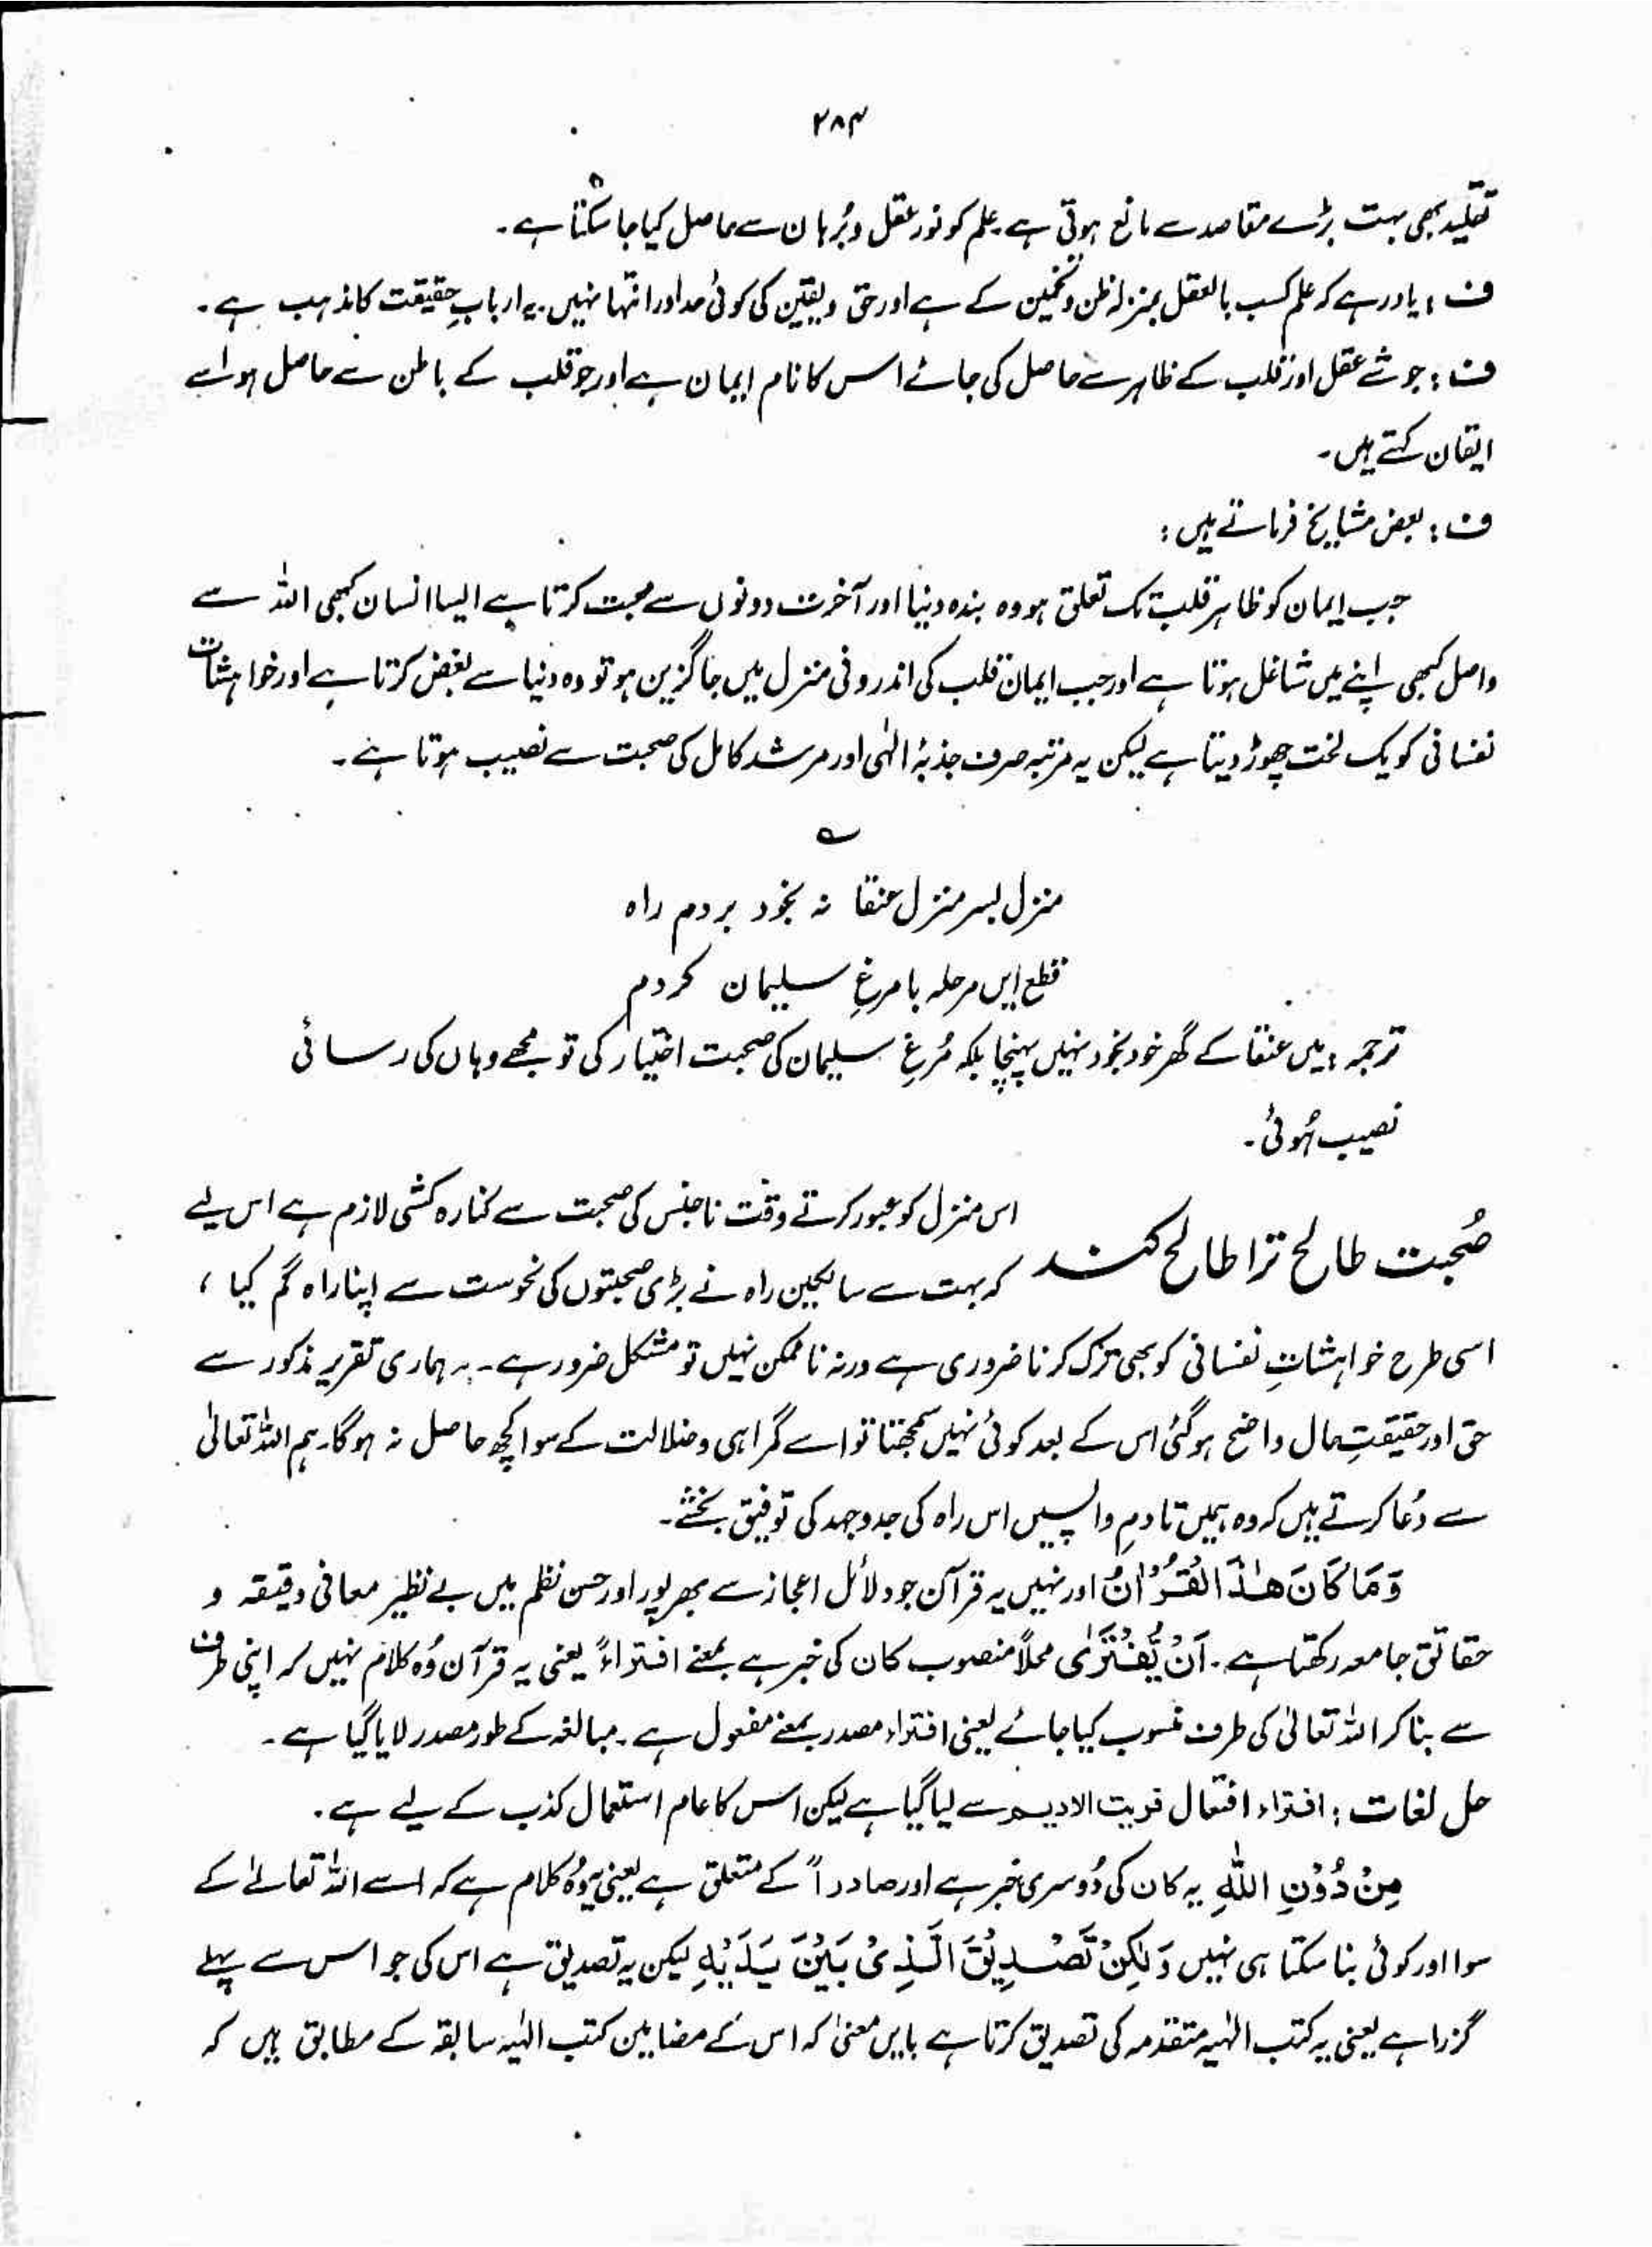 ۲۸۴
تقلید بھی بہت بڑے مقاصد سے مانع ہوتی ہے۔ علم کو نور عقل و بُرہان سے حاصل کیا جا سکتا ہے۔
ف : یاد رہے کہ علم کسب بالعقل بمنزلہ ظن و تخمین کے ہے اور حق و یقین کی کوئی حد اور انتہا نہیں۔ یہ اربابِ حقیقت کا مذہب ہے۔
ف : جو شے عقل اور قلب کے ظاہر سے حاصل کی جائے اس کا نام ایمان ہے اور جو قلب کے باطن سے حاصل ہو اسے
ایقان کہتے ہیں۔
ف : بعض مشایخ فرماتے ہیں :
جب ایمان کو ظاہر قلب تک تعلق ہو وہ بندہ دنیا اور آخرت دونوں سے محبت کرتا ہے ایسا انسان کبھی اللہ سے
واصل کبھی اپنے میں شاغل ہوتا ہے اور جب ایمان قلب کی اندرونی منزل میں جاگزین ہو تو وہ دنیا سے بغض کرتا ہے اور خواہشات
نفسانی کو یک لخت چھوڑ دیتا ہے لیکن یہ مرتبہ صرف جذبۂ الٰہی اور مرشد کامل کی صحبت سے نصیب ہوتا ہے۔
؎
منزل بسر منزل عنقا نہ بخود بردم راہ
قطع ایں مرحلہ با مرغِ سلیمان کردم
ترجمہ : میں عنقا کے گھر خود بخود نہیں پہنچا بلکہ مُرغِ سلیمان کی صحبت اختیار کی تو مجھے وہاں کی رسائی
نصیب ہُوئی۔
صُحبت طالح ترا طالح کند
اس منزل کو عبور کرتے وقت ناجنس کی صحبت سے کنارہ کشی لازم ہے اس لیے
کہ بہت سے سالکین راہ نے بڑی صحبتوں کی نحوست سے اپنا راہ گم کیا ،
اسی طرح خواہشاتِ نفسانی کو بھی ترک کرنا ضروری ہے ورنہ ناممکن نہیں تو مشکل ضرور ہے۔ ہماری تقریر مذکور سے
حق اور حقیقتِ حال واضح ہو گئی اس کے بعد کوئی نہیں سمجھتا تو اسے گمراہی و ضلالت کے سوا کچھ حاصل نہ ہوگا۔ ہم اللہ تعالیٰ
سے دُعا کرتے ہیں کہ وہ ہمیں تا دمِ واپسیں اس راہ کی جدوجہد کی توفیق بخشے۔
وَمَا كَانَ هٰذَا الْقُرْاٰنُ اور نہیں یہ قرآن جو دلائل اعجاز سے بھرپور اور حسن نظم میں بے نظیر معانی دقیقہ و
حقائق جامعہ رکھتا ہے۔ اَنْ يُّفْتَرٰى محلاً منصوب کان کی خبر ہے بمعنے افتراءً یعنی یہ قرآن وُہ کلام نہیں کہ اپنی طرف
سے بنا کر اللہ تعالیٰ کی طرف منسوب کیا جائے یعنی افتراء مصدر بمعنے مفعول ہے۔ مبالغہ کے طور مصدر لایا گیا ہے۔
حل لغات : افتراء افتعال فریت الادیم سے لیا گیا ہے لیکن اس کا عام استعمال کذب کے لیے ہے۔
مِنْ دُوْنِ اللّٰهِ یہ کان کی دُوسری خبر ہے اور صادراً کے متعلق ہے یعنی یہ وُہ کلام ہے کہ اسے اللہ تعالےٰ کے
سوا اور کوئی بنا سکتا ہی نہیں وَلٰكِنْ تَصْدِيْقَ الَّذِيْ بَيْنَ يَدَيْهِ لیکن یہ تصدیق ہے اس کی جو اس سے پہلے
گزرا ہے یعنی یہ کتب الٰہیہ متقدمہ کی تصدیق کرتا ہے بایں معنیٰ کہ اس کے مضامین کتب الٰہیہ سابقہ کے مطابق ہیں کہ